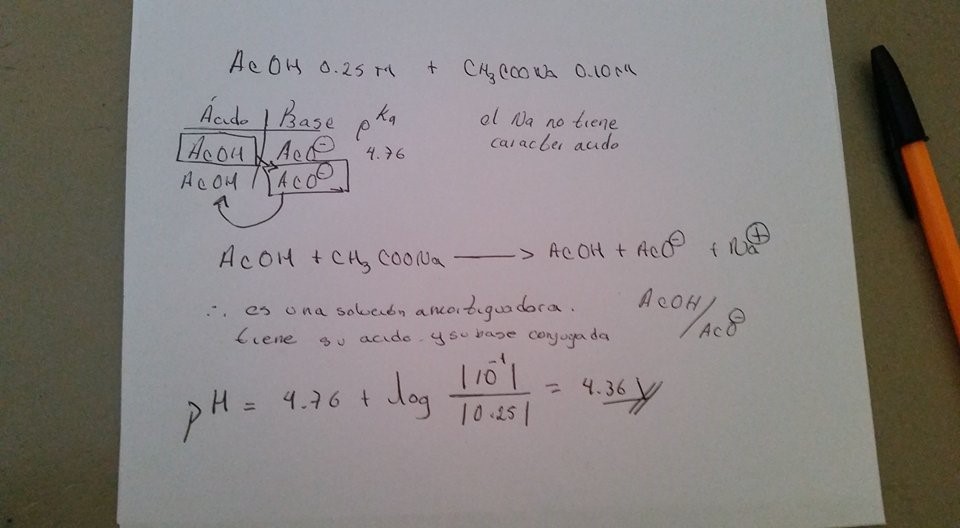 AcOH 0.25 M + CH₃COONa 0.10 M
Ácido | Base pKa
AcOH AcO⊖ 4.76
AcOH AcO⊖
el Na no tiene
caracter acido
AcOH + CH₃COONa ⟶ AcOH + AcO⊖ + Na⊕
∴ es una solución amortiguadora.
tiene su acido y su base conjugada
AcOH/AcO⊖
pH = 4.76 + log |10⁻¹| / |0.25| = 4.36